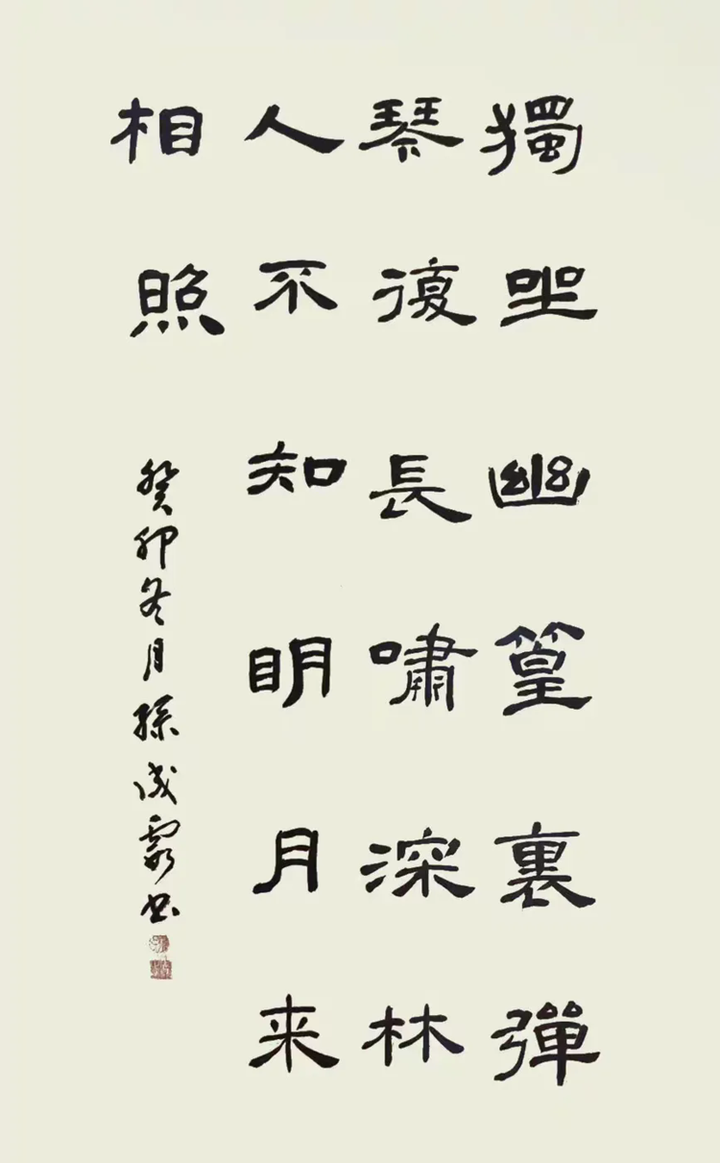 獨坐幽篁裏彈
琴復長嘯深林
人不知明月来
相照
癸卯冬月孫成霞书